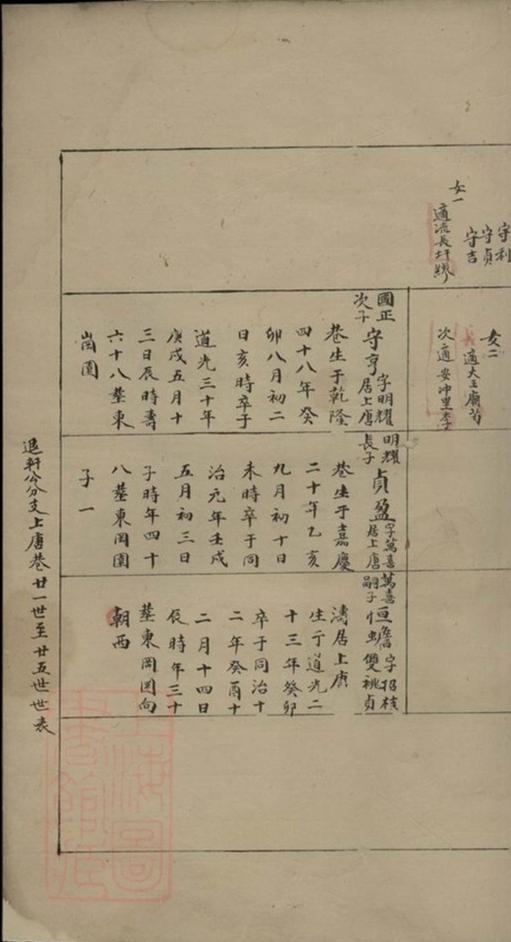 守利
守貞
守吉
女一
適流長圩繆
女二
長適大王廟前
次適安冲里李
國正
次子
守亨
字明耀
居上唐
巷生于乾隆
四十八年癸
卯八月初二
日亥時卒于
道光三十年
庚戌五月十
三日辰時壽
六十八塟東
崗園
明耀
長子
貞盈
字萬喜
居上唐
巷生于嘉慶
二十年乙亥
九月初十日
未時卒于同
治元年壬戌
五月初三日
子時年四十
八塟東岡園
子一
萬喜
嗣子
恒
字招枝
雙祧貞
濤居上唐
生于道光二
十三年癸卯
卒于同治十
二年癸酉十
二月十四日
辰時年三十
塟東岡園向
朝西
退軒公分支上唐巷廿一世至廿五世世表
上海圖書館藏